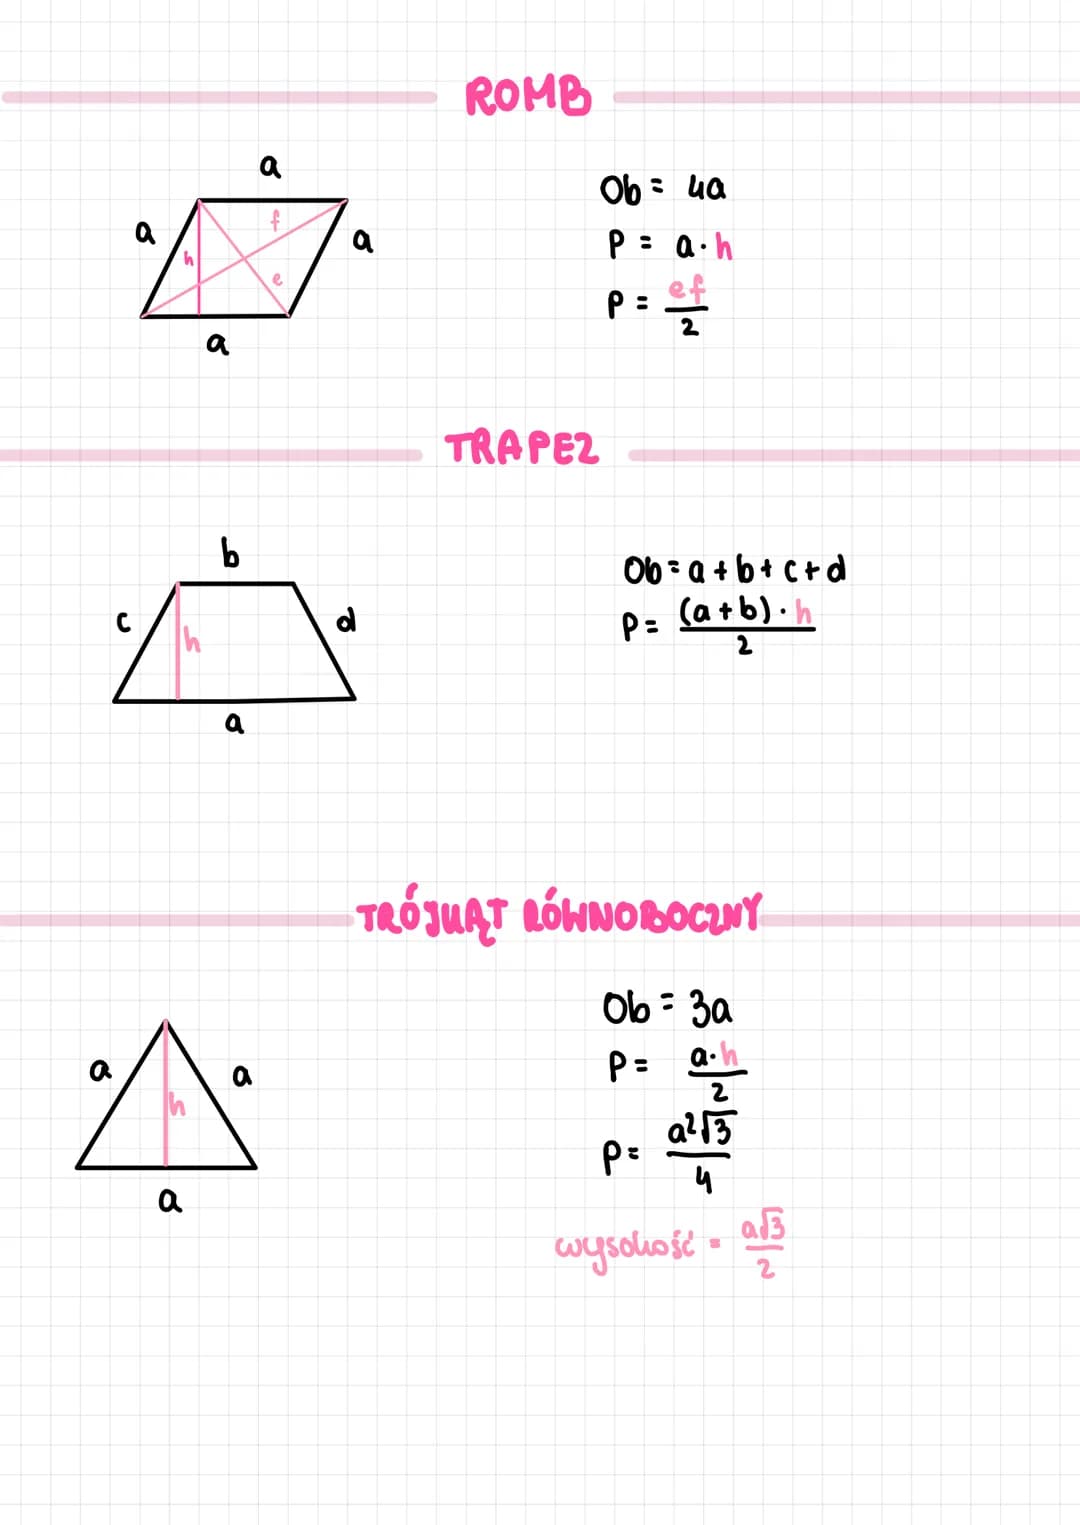 ROMB
a
a
f
h
a
e
a
Ob = 4a
P = a·h
P = ef/2
TRAPEZ
b
c
h
d
a
Ob = a + b + c + d
P = (a + b)·h/2
TRÓJKĄT RÓWNOBOCZNY
a
a
h
a
Ob = 3a
P = a·h/2
P = a²√3/4
wysokość = a√3/2